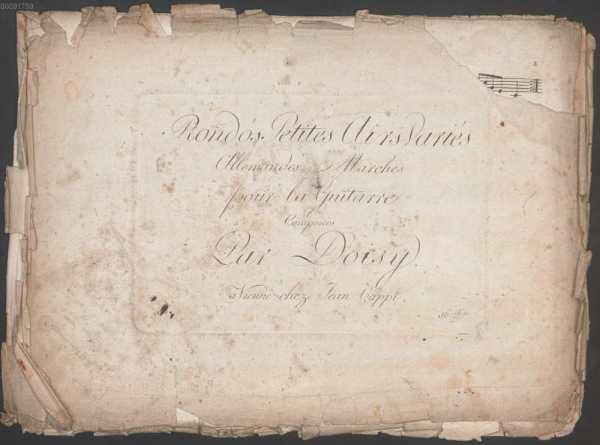 00091759
Rondós Petites Airs Variés
Allemandes et Marches
pour la Guitarre
Composées
Par Doisy
a Vienne chez Jean Cappi.